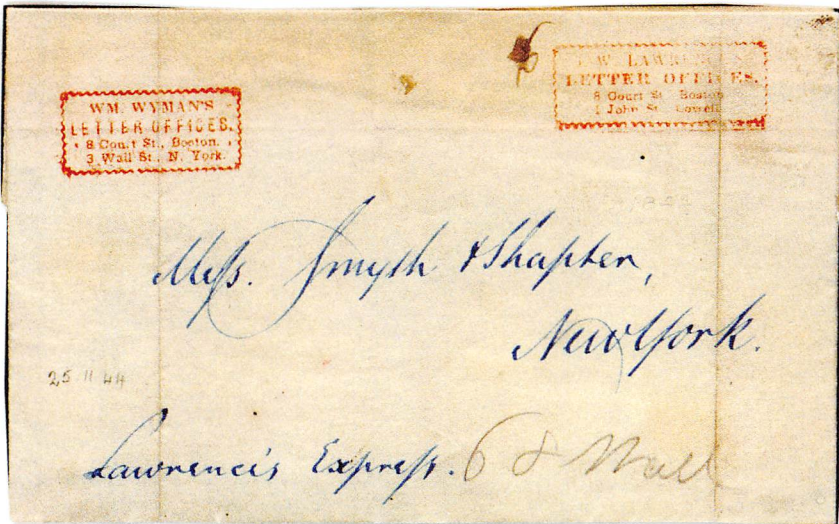 WM. WYMAN'S
LETTER OFFICES.
8 Court St., Boston.
3 Wall St., N. York.
W. LAWRENCE
LETTER OFFICES.
8 Court St. Boston
1 John St. Lowell
Mess. Smyth & Shapter,
New York.
25 11 44
Lawrence's Express.
68 Wall